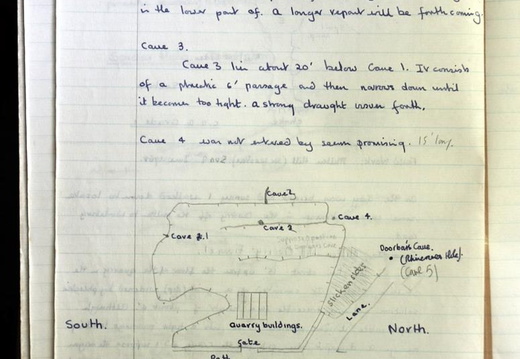 in the lower part of. A longer report will be forthcoming.
Cave 3.
Cave 3 lies about 20' below Cave 1. It consists
of a phreatic 6' passage and then narrows down until
it becomes too tight. A strong draught issues forth.
Cave 4 was not entered by seems promising. 15' long.
Cave
Cave 4.
Cave 2
Cave 1
Doorbar's Cave.
(Rhinoceros Hole).
(Cave 5)
Slickensides
Lane.
South.
Quarry buildings.
North.
Gate
Path